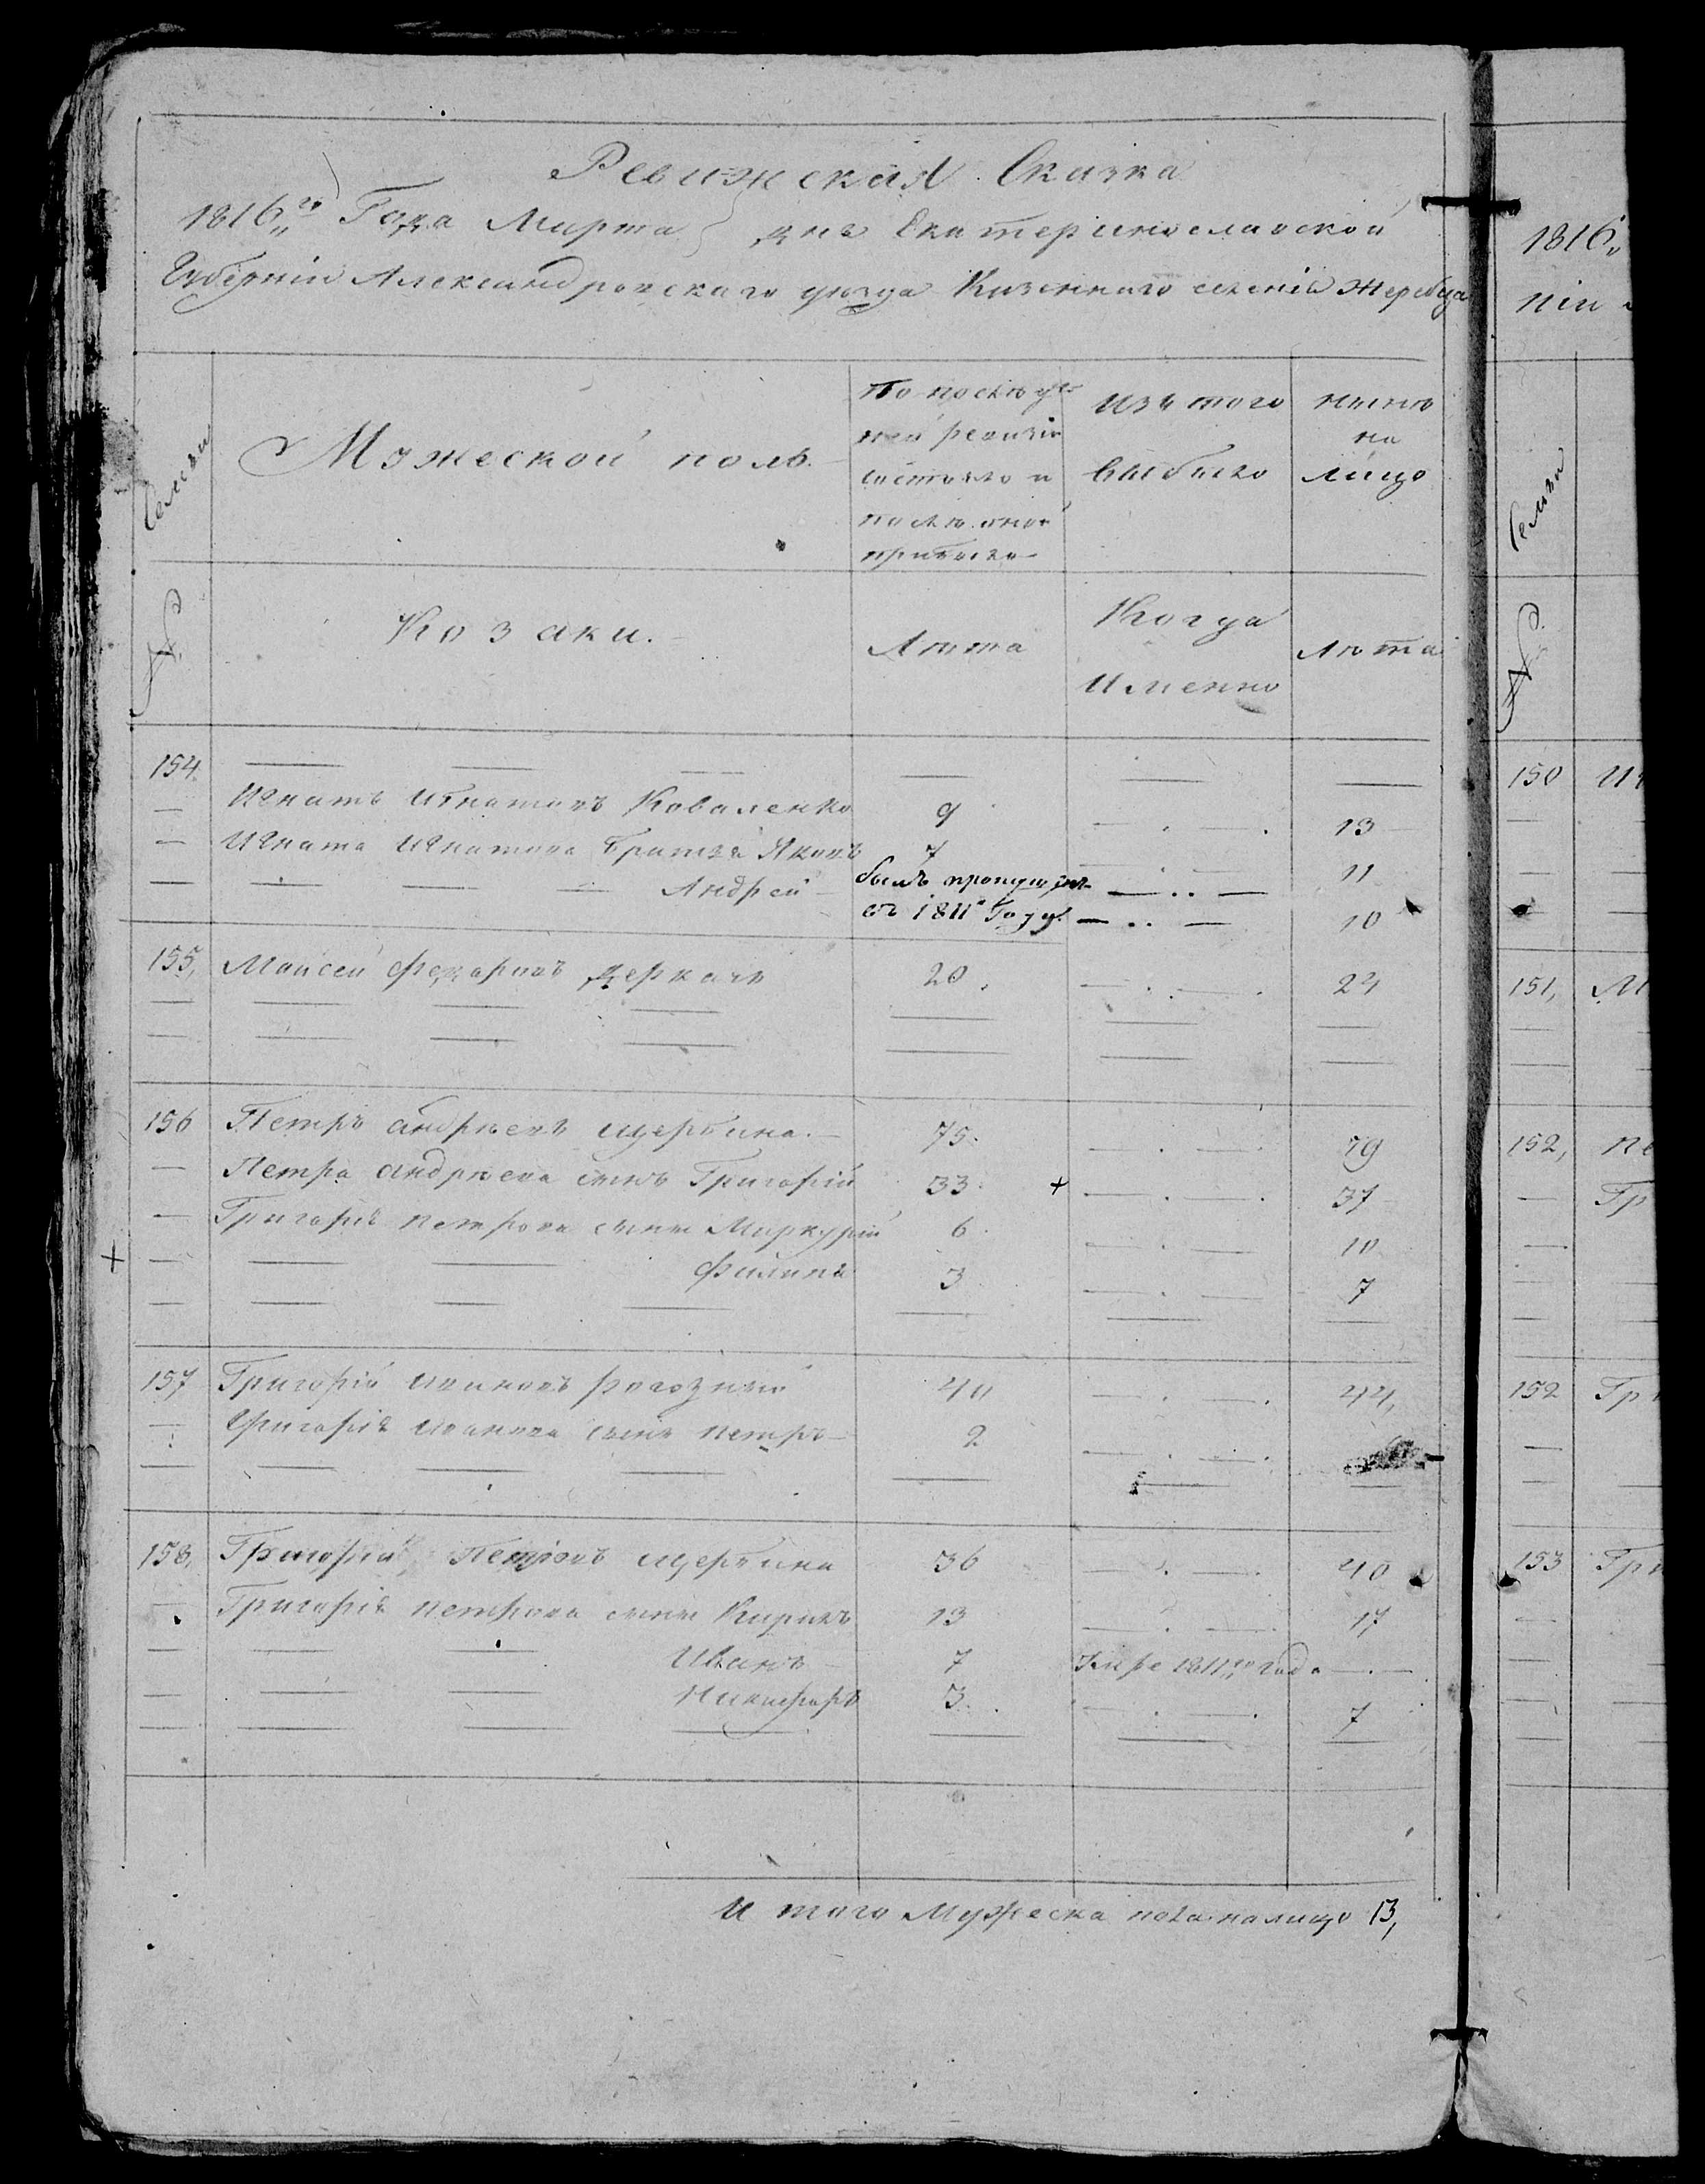 Ревижская Сказка
1816„го Года Марта дня Екатеринославской
Губернии Александровского уезда Казенного селенія Жеребца
Семьи
Мужеской полъ.
По последу
ней ревизіи
состояло и
после оной
прибыло
Изъ того
выбыло
ныне
на
лицо
№
Козаки.
Лета
Когда
Именно
Лета
154.
— Игнатъ Игнатовъ Коваленко 9 — . — . 13
— Игната Игнатова братья Яковъ 7 — . — 11
— — — — Андрей былъ пропущенъ — . . —
въ 1811м Году — . . — 10
155, Моисей Федоровъ Деркачь 20. — . — . 24
156 Петръ Андреевъ Щербина. 75. — . — 79
— Петра Андреева сынъ Григорій 33. + — . — . 37
— Григорія Петрова сыны Меркурій 6 — . — 10
+ — — — Филипъ 3 — . — 7
157 Григорій Ивановъ Рогозный 40 — . — . 44,
— Григорія Иванова сынъ Петръ 2 — . — .
158, Григорій Петровъ Щербина 36 — . — . 40
— Григорія Петрова сыны Кирилъ 13 — . — . 17
— — — Иванъ 7 Умре 1811„го года — . —
— — — Никифоръ 3. — . — . 7
И того Мужеска пола налицо 13,
1816„
ніи
Семьи
№
150
151, М
152, Пе
— Гр
152 Гр
153 Гри